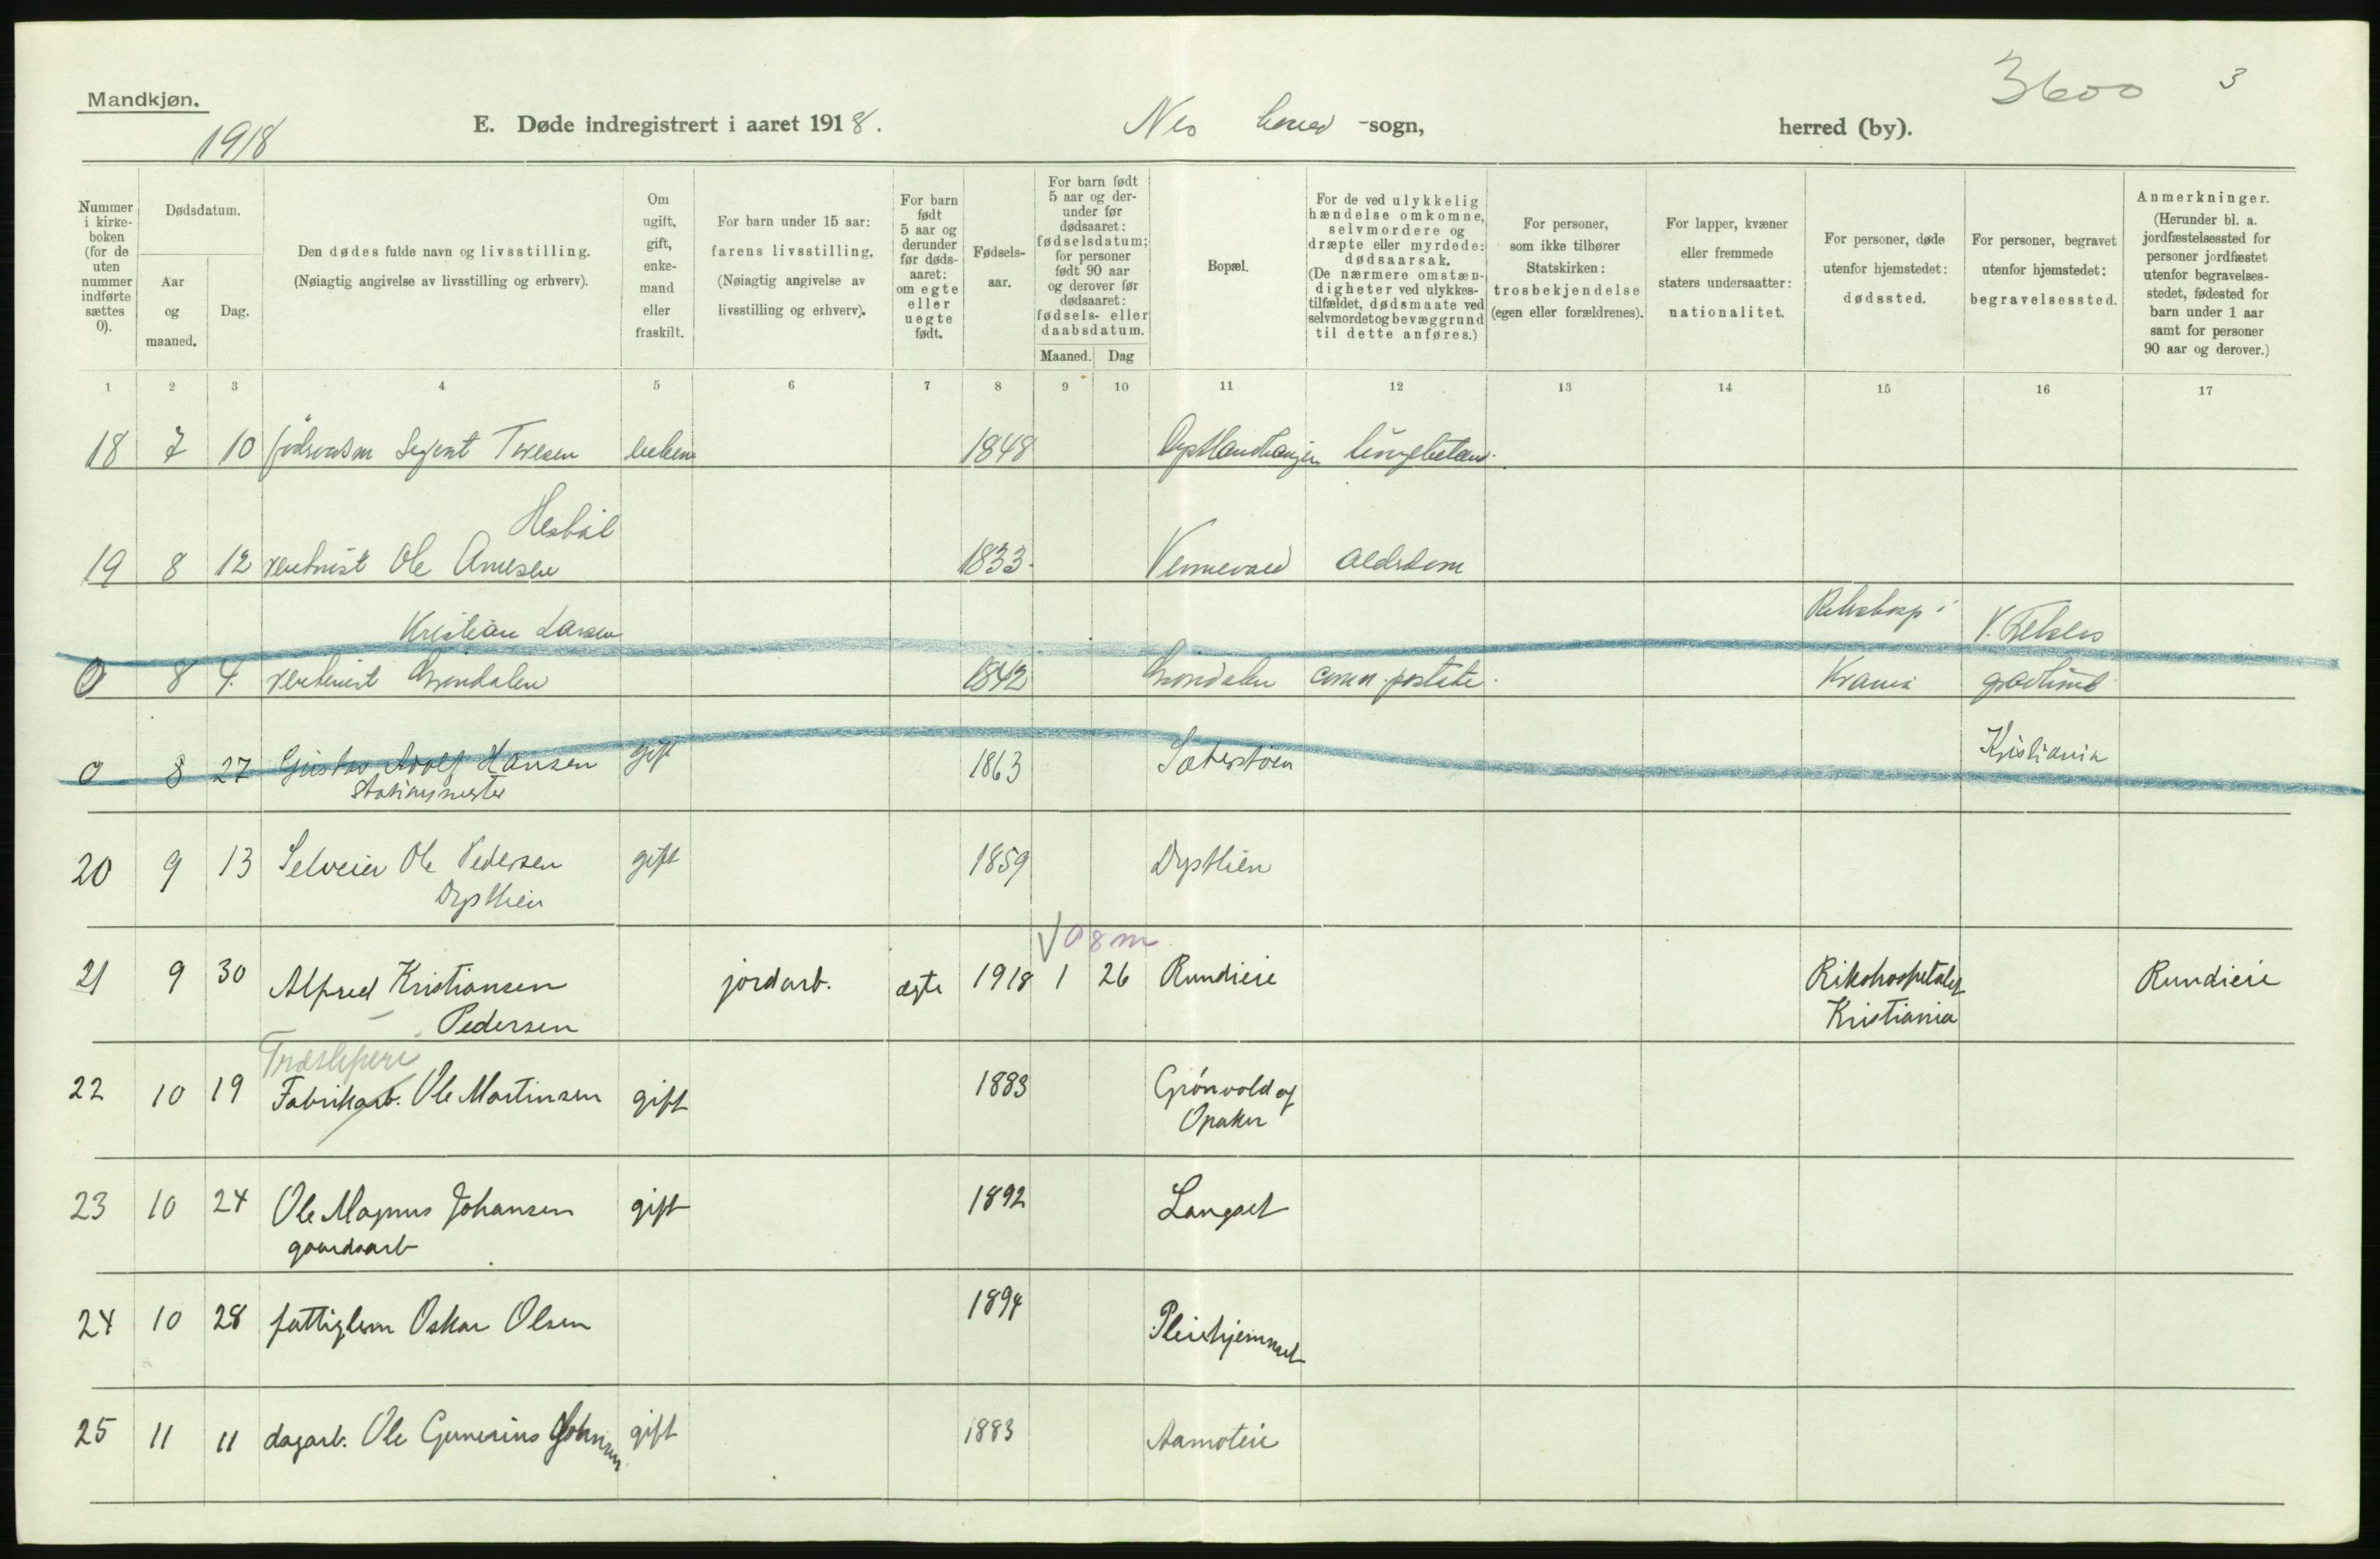 Mandkjøn.
1918
3600
3
E. Døde indregistrert i aaret 1918.
Nes herred -sogn,
herred (by).
Nummer i kirke-boken (for de uten nummer indførte sættes 0).
Dødsdatum.
Aar og maaned.
Dag.
Den dødes fulde navn og livsstilling.
(Nøiagtig angivelse av livsstilling og erhverv).
Om ugift, gift, enke-mand eller fraskilt.
For barn under 15 aar: farens livsstilling.
(Nøiagtig angivelse av livsstilling og erhverv).
For barn født 5 aar og derunder før døds-aaret: om egte eller uegte født.
Fødsels-aar.
For barn født 5 aar og der-under før dødsaaret: fødselsdatum; for personer født 90 aar og derover før dødsaaret: fødsels- eller daabsdatum.
Maaned.
Dag
Bopæl.
For de ved ulykkelig hændelse omkomne, selvmordere og dræpte eller myrdede: dødsaarsak.
(De nærmere omstæn-digheter ved ulykkes-tilfældet, dødsmaate ved selvmordet og bevæggrund til dette anføres.)
For personer, som ikke tilhører Statskirken: trosbekjendelse (egen eller forældrenes).
For lapper, kvæner eller fremmede staters undersaatter: nationalitet.
For personer, døde utenfor hjemstedet: dødssted.
For personer, begravet utenfor hjemstedet: begravelsessted.
Anmerkninger.
(Herunder bl. a. jordfæstelsessted for personer jordfæstet utenfor begravelses-stedet, fødested for barn under 1 aar samt for personer 90 aar og derover.)
1 2 3 4 5 6 7 8 9 10 11 12 13 14 15 16 17
18 7 10 1848
Hesbøl
19 8 12 Ole Arnesen 1833 Alderdom
Kristian Larsen
0 8 4 Grøndalen 1842 Grøndalen Krania
0 8 27 Gustav Adolf Hansen gift 1863 Kristiania
Stationsmester
20 9 13 Selveier Ole Pedersen gift 1859 Dysthien
Dysthien
V 0 8 m
21 9 30 Alfred Kristiansen jordarb. ægte 1918 1 26 Rundieie Rikshospitalet Rundieie
Pedersen Kristiania
Træsliperi
22 10 19 Fabrikarb. Ole Martinsen gift 1883 Grönvold af
Opaker
23 10 24 Ole Magnus Johansen gift 1892 Langset
gaardsarb
24 10 28 fattiglem Oskar Olsen 1894 Pleiehjemmet
25 11 11 dagarb. Ole Gunerius Johnsen gift 1883 Aamoteie